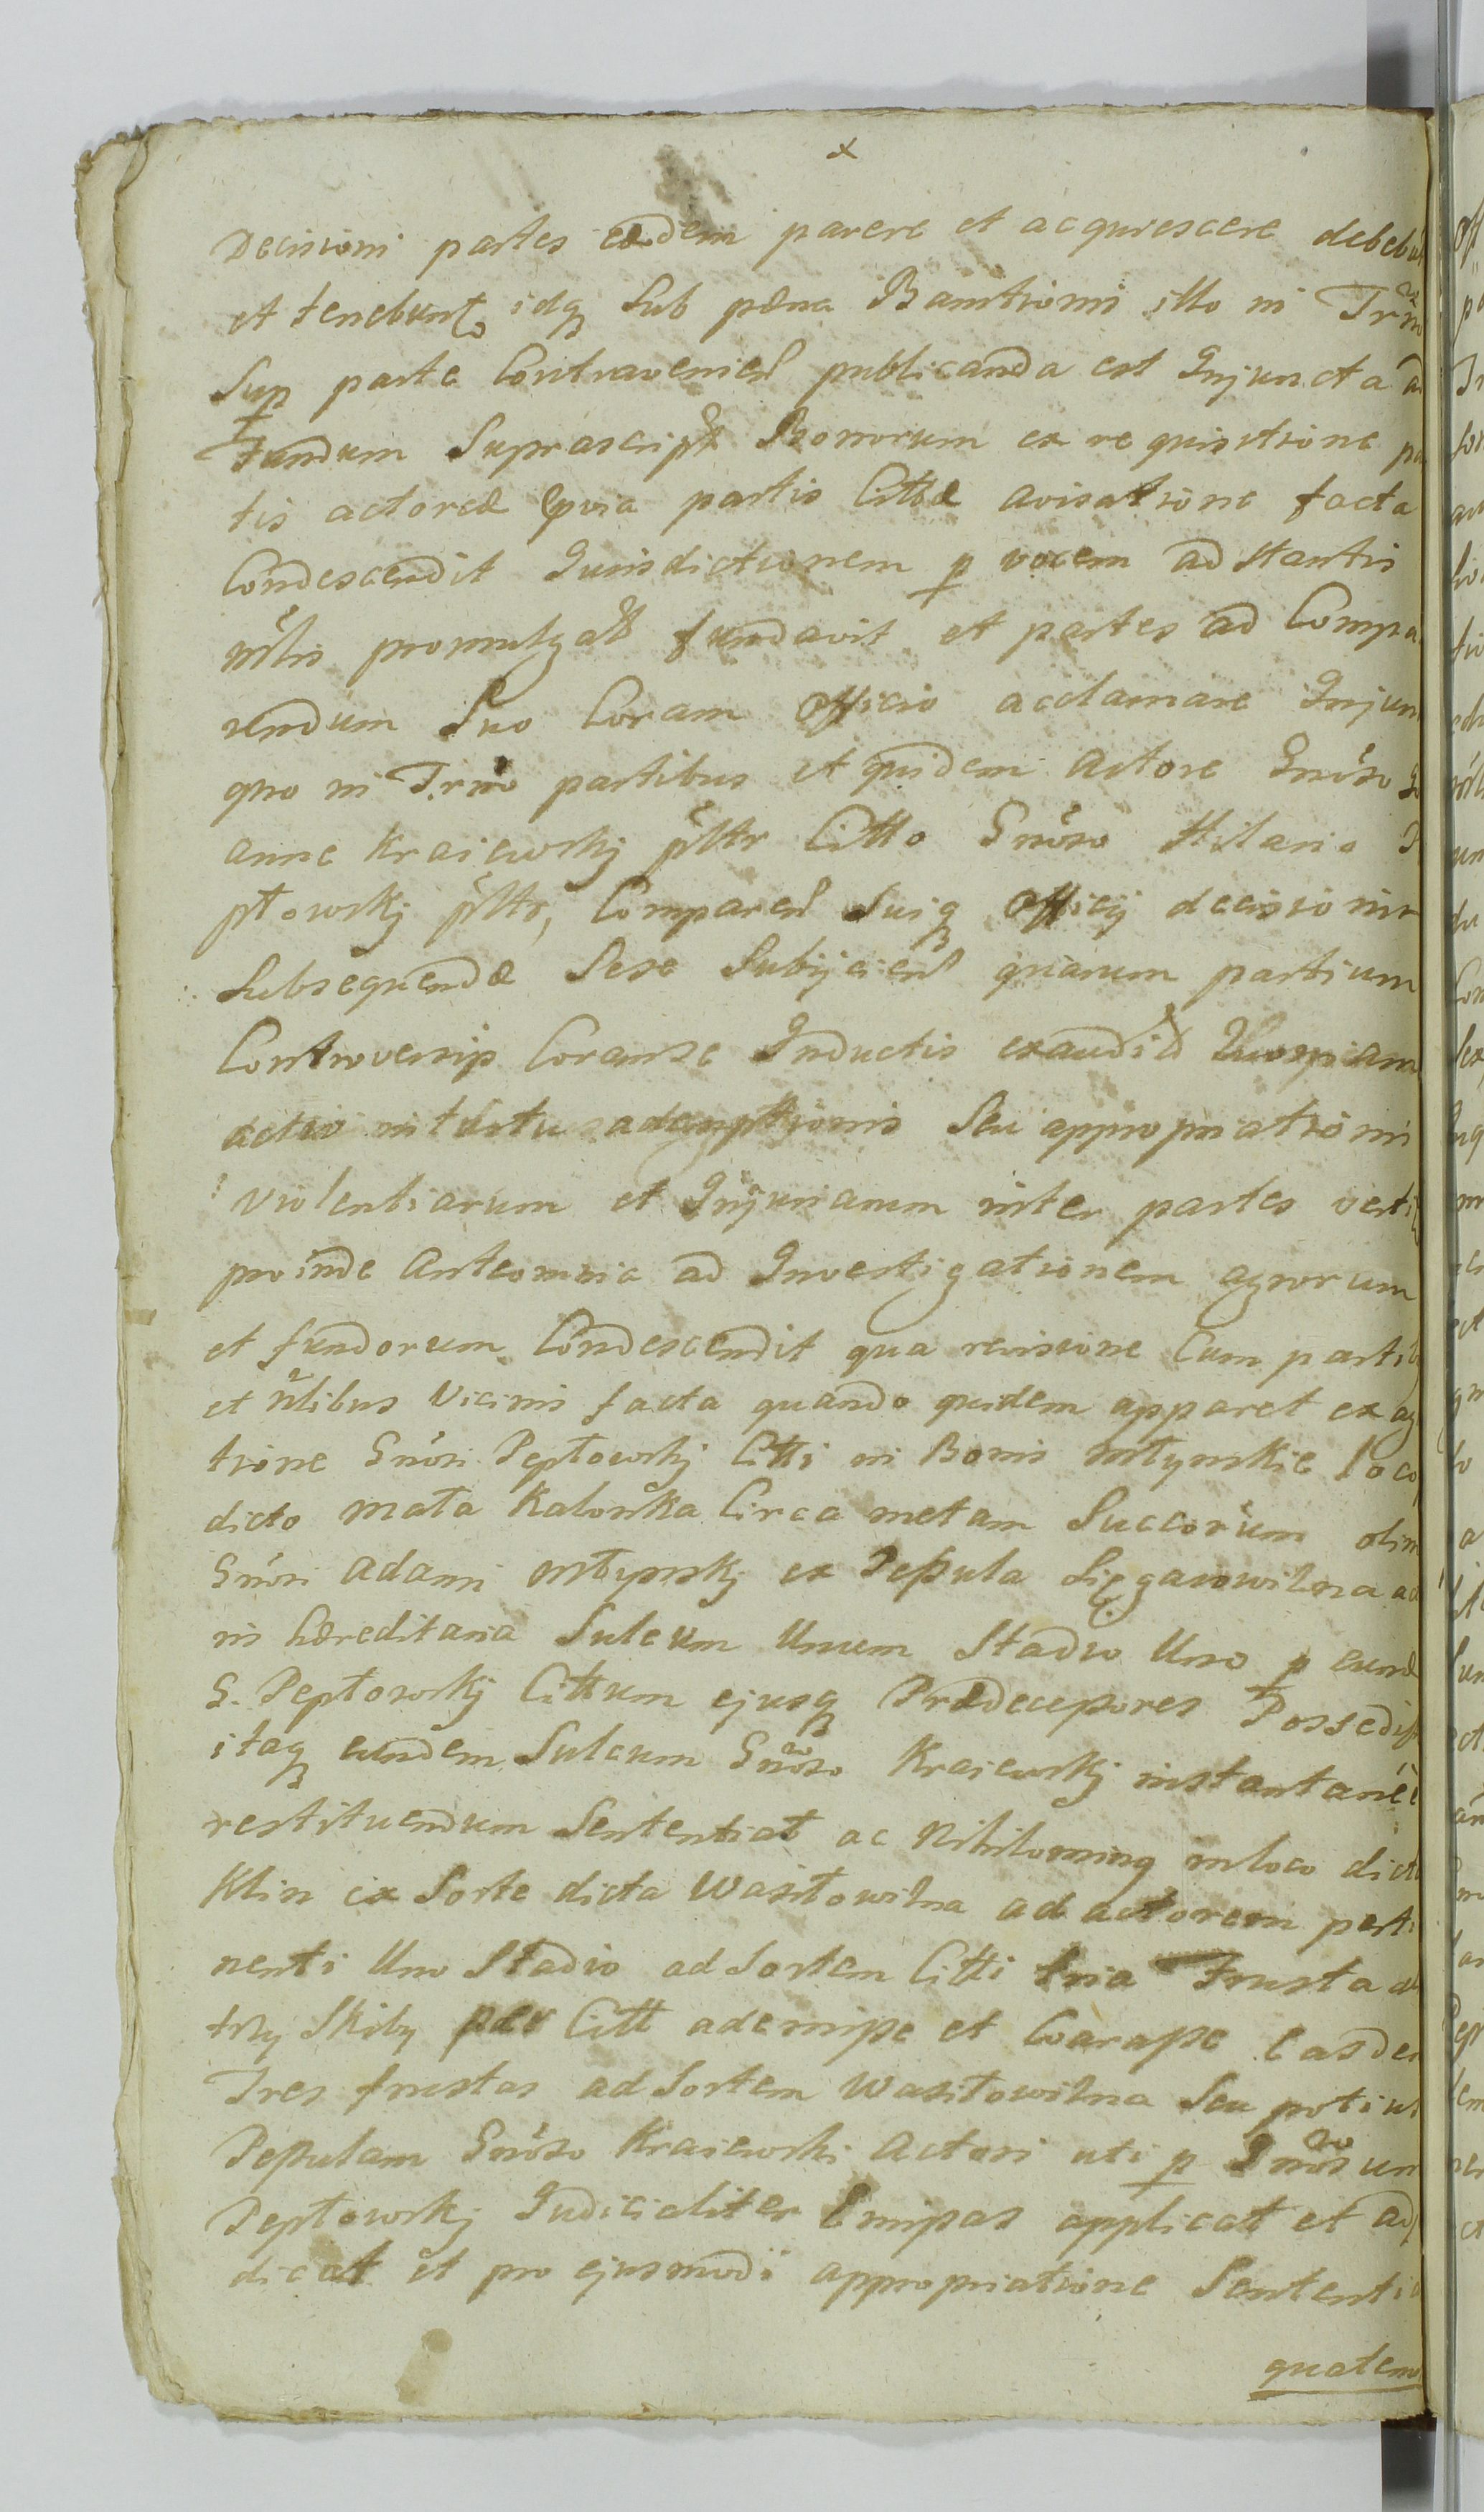 x
Decisioni partes eædem parere et acquiescere debebunt
et tenebunt idq sub pæna Banitionis illo in Trno
Sup parte Contravenien publicanda est Injuncta ad
Fundum Suprascipt Bonorum ex requisitione par
tis actoreæ pvia partis Cittæ avisatione facta
Condescendit Jurisdictionem p vocem adstantis
mlis promulgat fundavit et partes ad Compa
rendum Suo Coram Officio acclamare Injun
quo in Trno partibus et quidem Actore Gnoso Jo
anne Kraiewskj pltr Citto Gnoso Hilario Pe
ptowskj pltr, Comparen Suiq Officij decisionis
Subsequendæ Sese Subijcien quarum partium
Controversijs Coramse Inductis exaudit Quoniam
actio intuitu ademptionis Seu appropriationis
Violentiarum et Injuriarum inter partes verti
proinde Anteomnia ad Investigationem agrorum
et fundorum Condescendit qua revisione Cum parti
et nlibus Vicinis facta quando quidem apparet ex ag
tione Gnosi Peptowskj Citti in Bonis Młynskie Loco
dicto Mała Kalonka Circa metam Succorum olim
Gnosi Adami Młynskj ex Pessula Sięgarowizna ad
in hæreditaria Sulcum Unum Stadio Uno p eund
G. Peptowskj Cittum ejusq Prædecessores Possedisse
itaq eundem Sulcum Gnoso Kraiewskj instantanée
restituendum Sententiat ac Nihilominq inloco dicto
Klin ex Sorte dicta Wasiłowizna ad actorem perti
nenti Uno Stadio ad Sortem Citti tria Frusta al
trzy Skiby per Citt ademisse et Coarasse Easdem
Tres frustas ad Sortem Wasiłowizna Seu potius
Pessulam Gnoso Kraiewski Actori uti p Gnosum
Peptowskj Judicialiter Emissas applicat et ad
dicat et pro ejusmodi appropriatione Sententia
quatenus